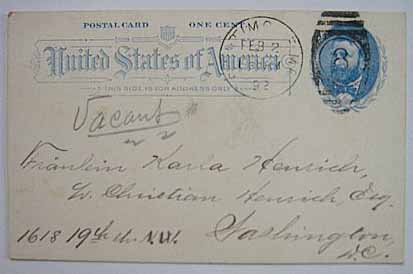 POSTAL CARD ONE CENT
United States of America
THIS SIDE IS FOR ADDRESS ONLY
FEB 2
92
8
Vacant
Fräulein Karla Henrich,
Christian Henrich, Esq.
1618 19th St. N.W. Washington,
D.C.